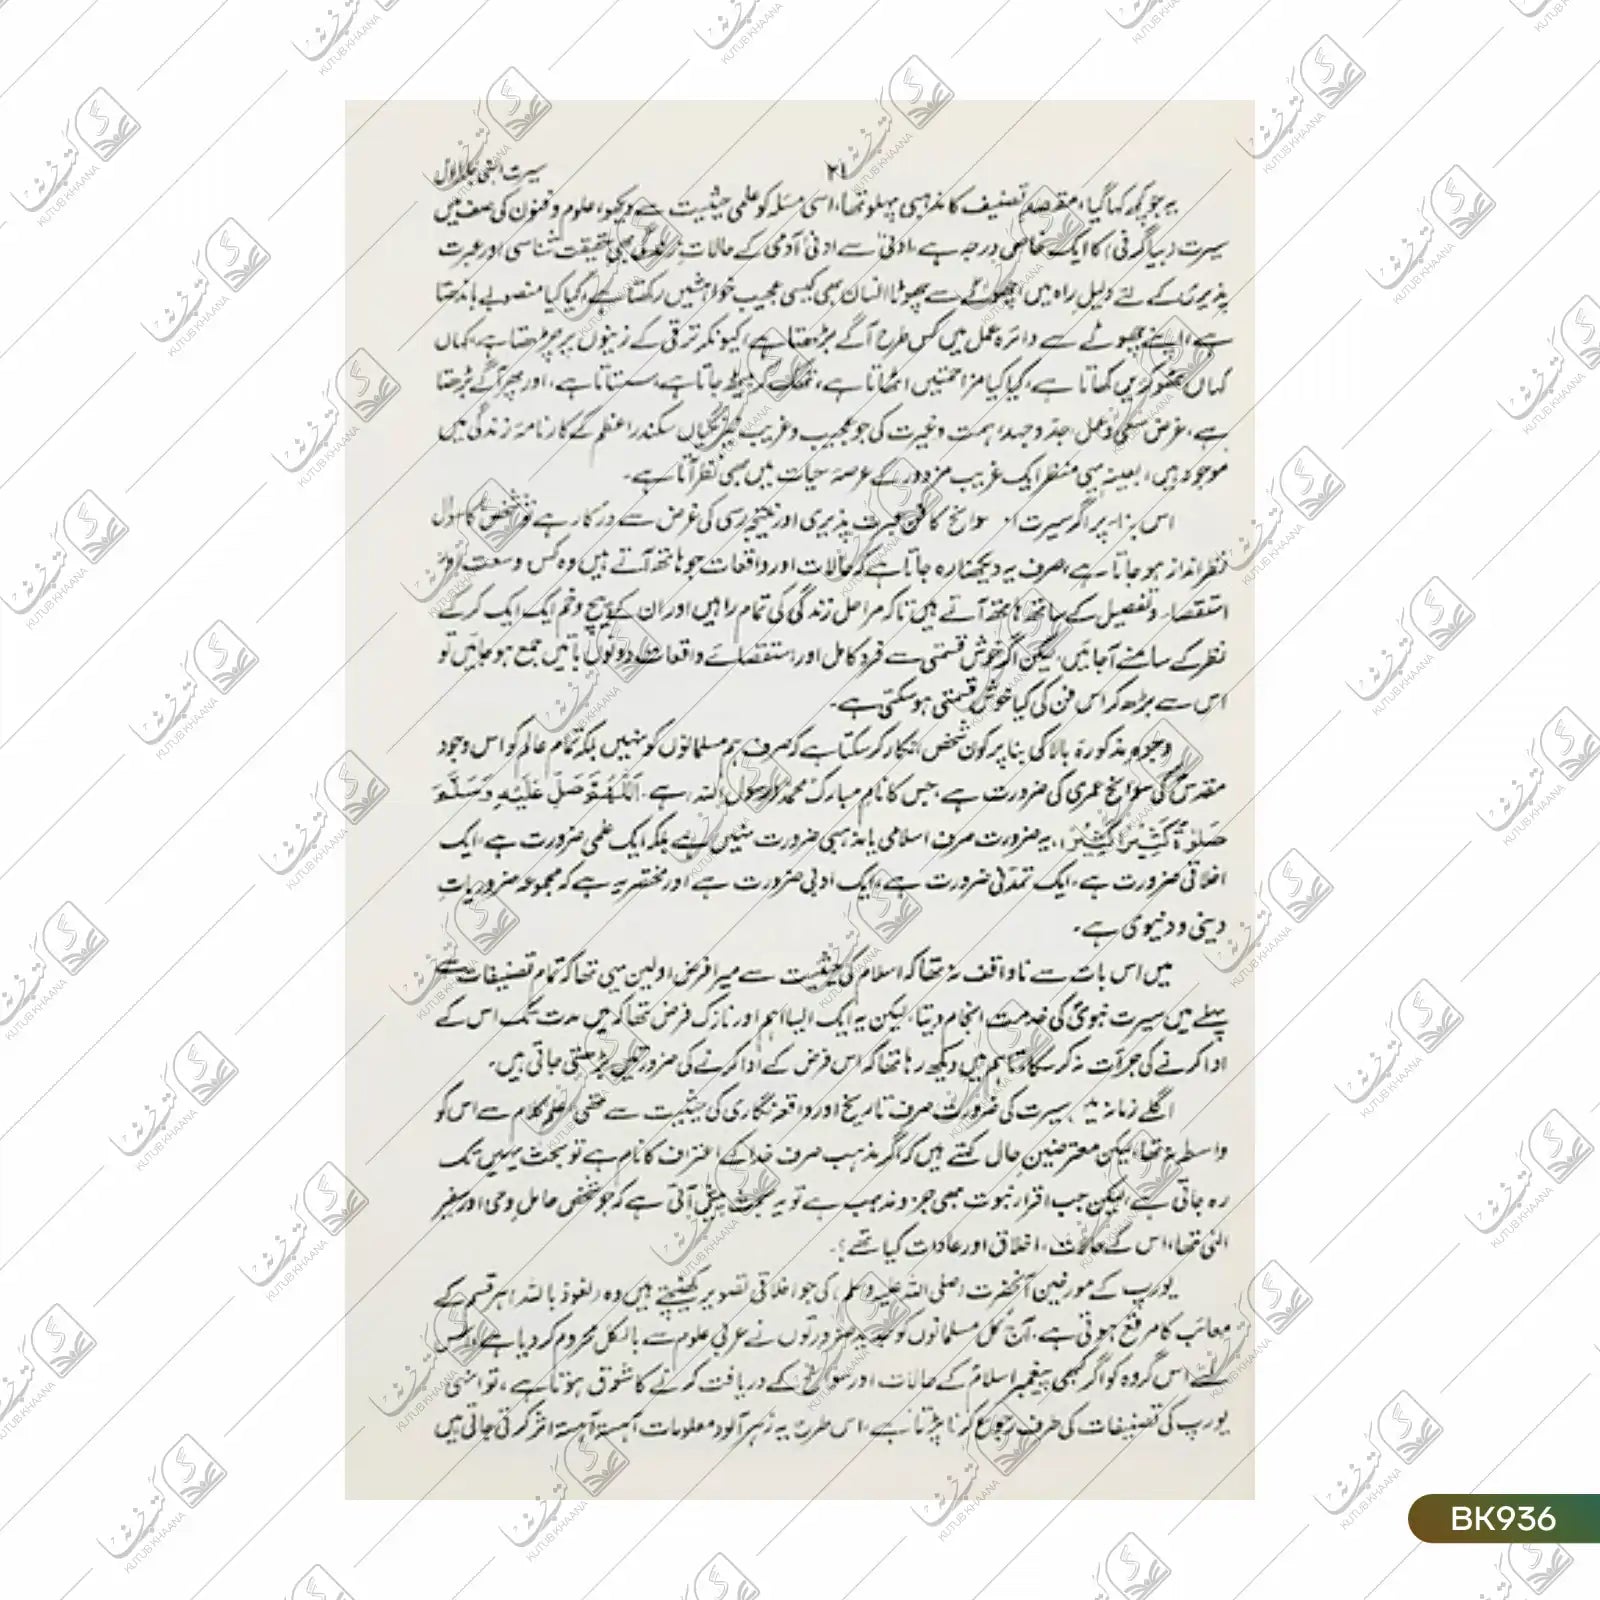 سیرت النبی جلد اول
۲۱
یہ جو کچھ کہا گیا، مقصدِ تصنیف کا مذہبی پہلو تھا، اسی مسئلہ کو علمی حیثیت سے دیکھو، علوم و فنون کی صف میں
سیرت (بیاگرفی) کا ایک خاص درجہ ہے، ادنیٰ سے ادنیٰ آدمی کے حالاتِ زندگی بھی حقیقت شناسی اور عبرت
پذیری کے لئے دلیل راہ ہیں، چھوٹے سے چھوٹا انسان بھی کیسی عجیب خواہشیں رکھتا ہے، کیا کیا منصوبے باندھتا
ہے، اپنے چھوٹے سے دائرہ عمل میں کس طرح آگے بڑھتا ہے، کیونکر ترقی کے زینوں پر چڑھتا ہے، کہاں
کہاں ٹھوکریں کھاتا ہے، کیا کیا مزاحمتیں اٹھاتا ہے، تھک کر بیٹھ جاتا ہے، سستاتا ہے، اور پھر آگے بڑھتا
ہے، غرض سعی و عمل، جد و جہد، ہمت و غیرت کی جو عجیب و غریب نیرنگیاں سکندر اعظم کے کارنامۂ زندگی میں
موجود ہیں، بعینہٖ یہی منظر ایک غریب مزدور کے عرصۂ حیات میں بھی نظر آتا ہے۔
اس بنا پر اگر سیرت اور سوانح کا فن عبرت پذیری اور نتیجہ رسی کی غرض سے درکار ہے تو شخص کا سوال
نظر انداز ہو جاتا ہے، صرف یہ دیکھنا رہ جاتا ہے کہ حالات اور واقعات جو ہاتھ آتے ہیں وہ کس وسعت اور
استقصاء و تفصیل کے ساتھ ہاتھ آتے ہیں تاکہ مراحل زندگی کی تمام راہیں اور ان کے پیچ و خم ایک ایک کر کے
نظر کے سامنے آجائیں، لیکن اگر خوش قسمتی سے فرد کامل اور استقصائے واقعات دونوں باتیں جمع ہو جائیں تو
اس سے بڑھ کر اس فن کی کیا خوش قسمتی ہو سکتی ہے۔
وجوہ مذکورۂ بالا کی بنا پر کون شخص انکار کر سکتا ہے کہ صرف ہم مسلمانوں کو نہیں بلکہ تمام عالم کو اس وجود
مقدس کی سوانح عمری کی ضرورت ہے، جس کا نام مبارک محمد رسول اللہ ہے، اَللّٰهُمَّ صَلِّ عَلَیْهِ وَسَلِّمْ
صَلٰوةً کَثِیْرًا کَثِیْرًا، یہ ضرورت صرف اسلامی یا مذہبی ضرورت نہیں ہے بلکہ ایک علمی ضرورت ہے، ایک
اخلاقی ضرورت ہے، ایک تمدنی ضرورت ہے، ایک ادبی ضرورت ہے اور مختصر یہ ہے کہ مجموعہ ضروریاتِ
دینی و دنیوی ہے۔
میں اس بات سے ناواقف نہ تھا کہ اسلام کی حیثیت سے میرا فرض اولین یہی تھا کہ تمام تصنیفات سے
پہلے میں سیرت نبویؐ کی خدمت انجام دیتا، لیکن یہ ایک ایسا اہم اور نازک فرض تھا کہ میں مدت تک اس کے
ادا کرنے کی جرأت نہ کر سکا، تاہم میں دیکھ رہا تھا کہ اس فرض کے ادا کرنے کی ضرورتیں بڑھتی جاتی ہیں۔
اگلے زمانہ میں سیرت کی ضرورت صرف تاریخ اور واقعہ نگاری کی حیثیت سے تھی، علم کلام سے اس کو
واسطہ نہ تھا، لیکن معترضین حال کہتے ہیں کہ اگر مذہب صرف خدا کے اعتراف کا نام ہے تو بحث یہیں تک
رہ جاتی ہے، لیکن جب اقرار نبوت بھی جزو مذہب ہے تو یہ بحث پیش آتی ہے کہ جو شخص حامل وحی اور سفیر
الٰہی تھا، اس کے حالات، اخلاق اور عادات کیا تھے؟
یورپ کے مورخین آنحضرت (صلی اللہ علیہ وسلم) کی جو اخلاقی تصویر کھینچتے ہیں وہ (نعوذ باللہ) ہر قسم کے
معائب کا مرقع ہوتی ہے، آج کل مسلمانوں کو جدید ضرورتوں نے عربی علوم سے بالکل محروم کر دیا ہے، اس
لئے اس گروہ کو اگر کبھی پیغمبر اسلام کے حالات اور سوانح کے دریافت کرنے کا شوق ہوتا ہے، تو انہی
یورپ کی تصنیفات کی طرف رجوع کرنا پڑتا ہے، اس طرح یہ زہر آلود معلومات آہستہ آہستہ اثر کرتی جاتی ہیں
BK936